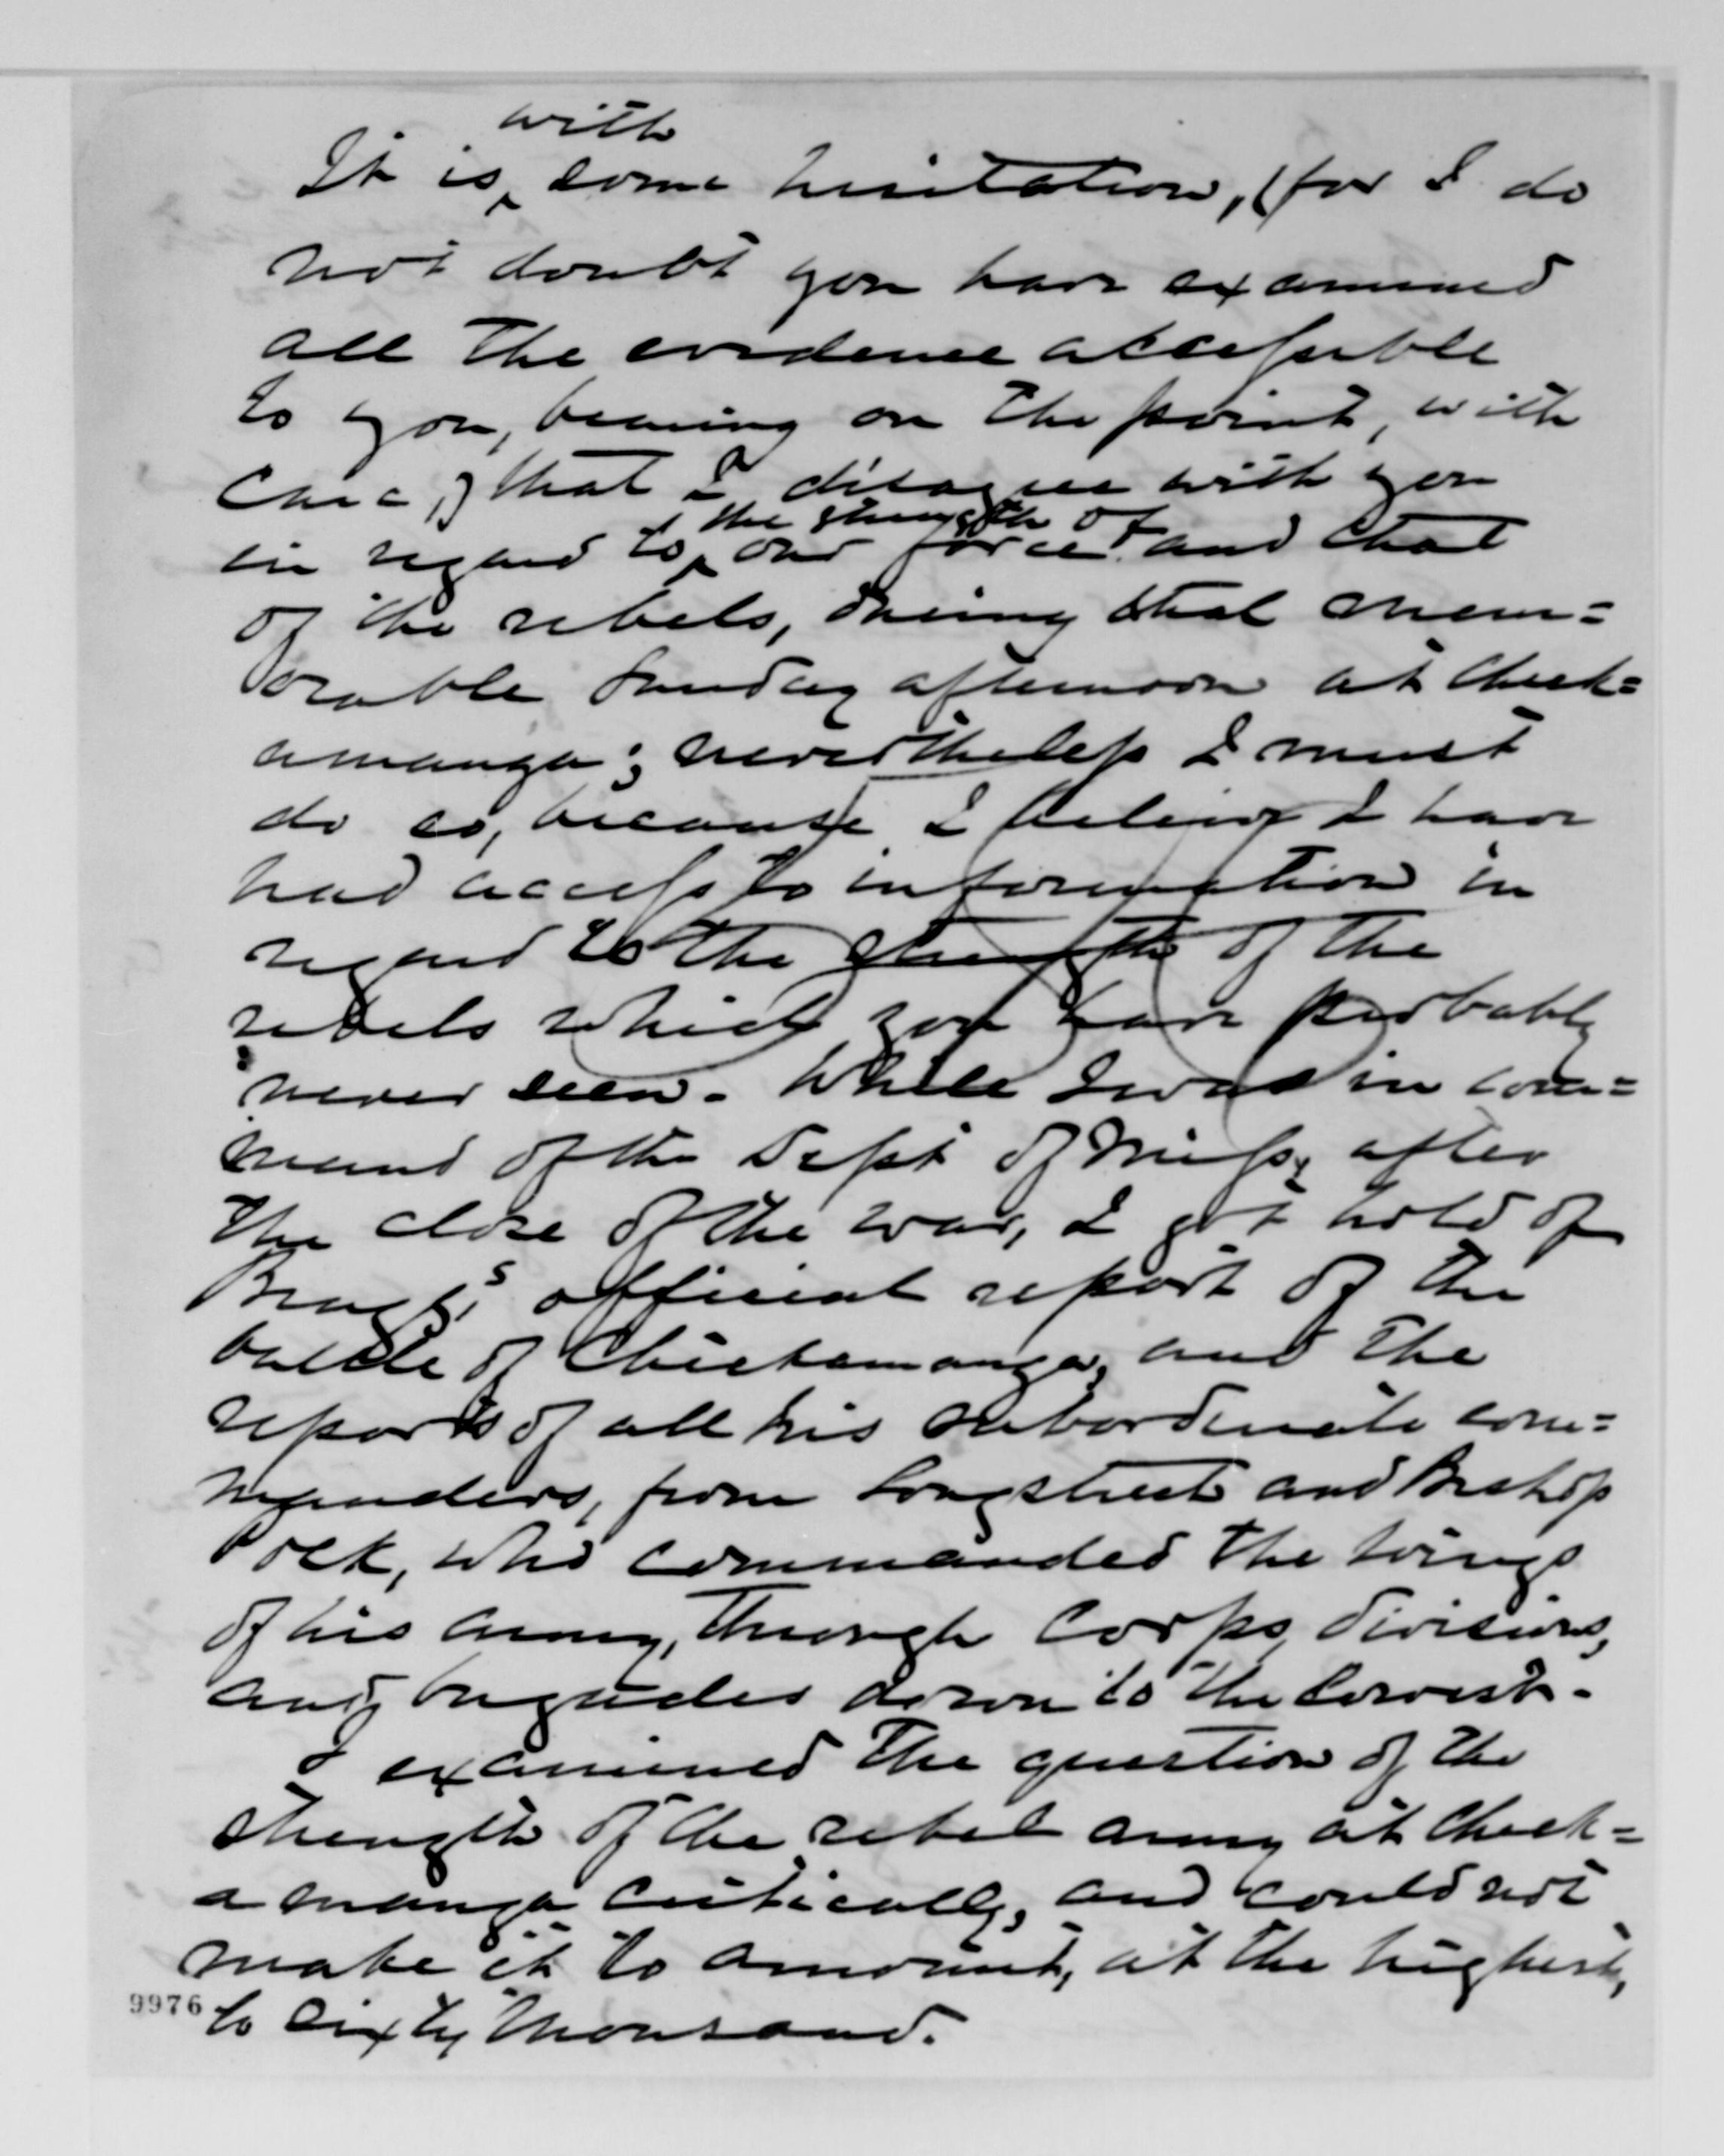 with
It is ^ some hesitation, (for I do
not doubt you have examined
all the evidence accessible
to you, bearing on the point, with
care,) that I disagree with you
the strength of
in regard to ^ our force and that
of the rebels, during that mem=
orable Sunday afternoon at Chick=
amauga; nevertheless I must
do so, because I believe I have
had access to information in
regard to the strength of the
rebels which you have probably
never seen. While I was in com=
mand of the Dept of Miss, after
the close of the war, I got hold of
Bragg's official report of the
battle of Chickamauga, and the
reports of all his subordinate com=
manders, from Longstreet and Bishop
Polk, who commanded the wings
of his army, through Corps, divisions,
and, brigades down to the lowest.
I examined the question of the
strength of the rebel army at Chick=
amauga critically, and could not
make it to amount, at the highest,
9976 to sixty thousand.